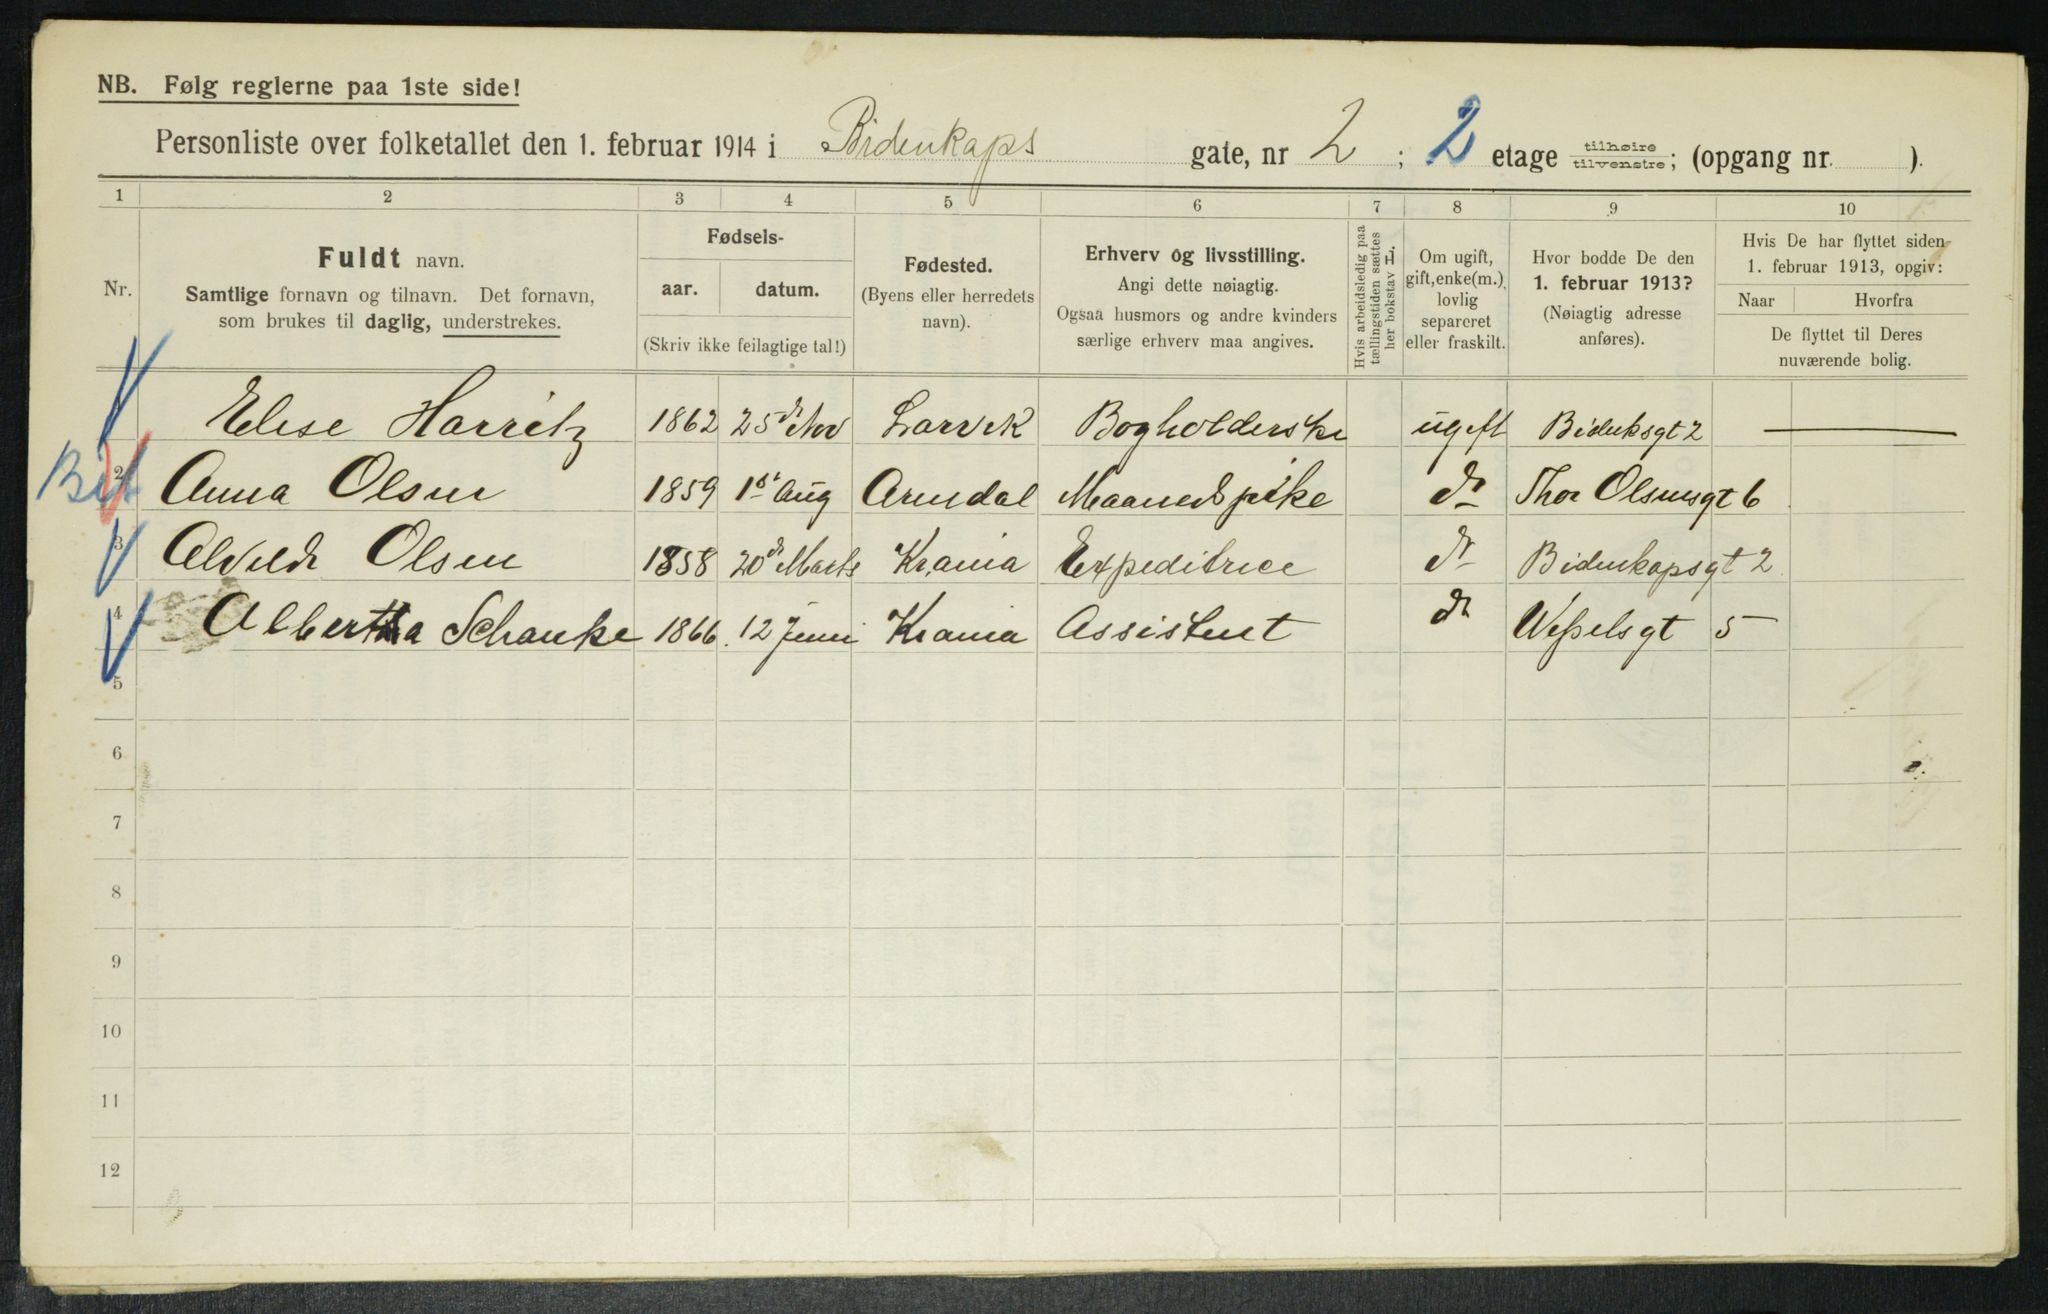 NB. Følg reglerne paa 1ste side!
Personliste over folketallet den 1. februar 1914 i Bidenkaps gate, nr 2 ; 2 etage tilhøire tilvenstre; (opgang nr. ).
1 2 3 4 5 6 7 8 9 10
Nr.
Fuldt navn.
Samtlige fornavn og tilnavn. Det fornavn,
som brukes til daglig, understrekes.
Fødsels-
aar. datum.
(Skriv ikke feilagtige tal!)
Fødested.
(Byens eller herredets
navn).
Erhverv og livsstilling.
Angi dette nøiagtig.
Ogsaa husmors og andre kvinders
særlige erhverv maa angives.
Hvis arbeidsledig paa
tællingstiden sættes
her bokstav L.
Om ugift,
gift, enke(m.),
lovlig
separeret
eller fraskilt.
Hvor bodde De den
1. februar 1913?
(Nøiagtig adresse
anføres).
Hvis De har flyttet siden
1. februar 1913, opgiv:
Naar Hvorfra
De flyttet til Deres
nuværende bolig.
Elise Harritz 1862 25de Nov Larvik Bogholderske ugift Bidenksgt 2
2 Anna Olsen 1859 1ste Aug Arendal Maanedspike do Thor Olsensgt 6
3 Alvilde Olsen 1858 20de Marts Krania Expeditrice do Bidenkapsgt 2
4 Albertha Schanke 1866. 12 Juni Krania Assistent do Wesselsgt 5
5
6
7
8
9
10
11
12